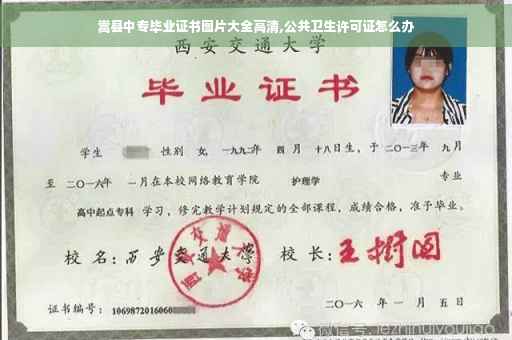 嵩县中专毕业证书图片大全高清,公共卫生许可证怎么办
西安交通大学
毕业证书
学生 性别 女, 一九九二年 四月 十八日生, 于二〇一三年 九月
至 二〇一六年 一月在本校网络教育学院 护理学 专业
高中起点专科 学习, 修完教学计划规定的全部课程, 成绩合格, 准予毕业。
校名: 西安交通大学 校长: 王树国
西安交通大学
证书编号: 1069872016060
二〇一六年 一月 五日
微信号: jezhihuiyoujiao